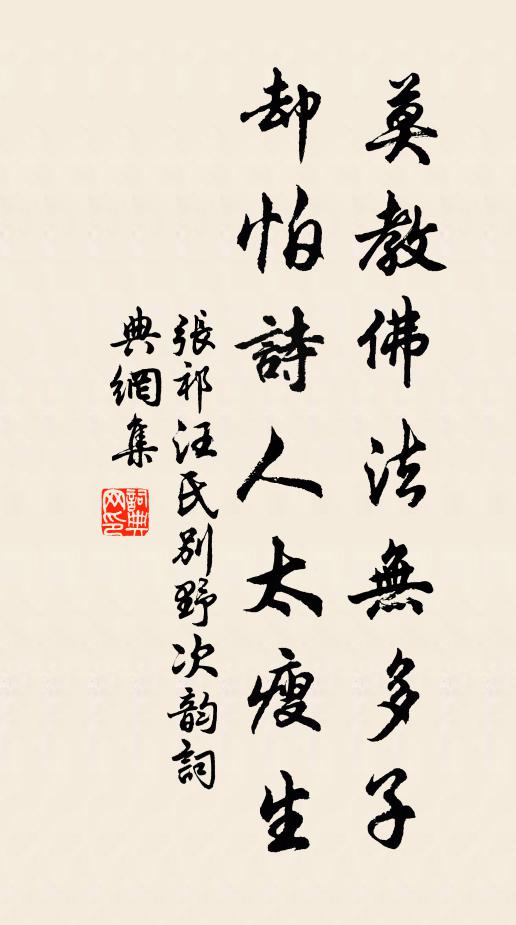 莫教佛法無多子
却怕詩人太瘦生
張祁汪氏別野次韵詞
典網集
詞典
网印